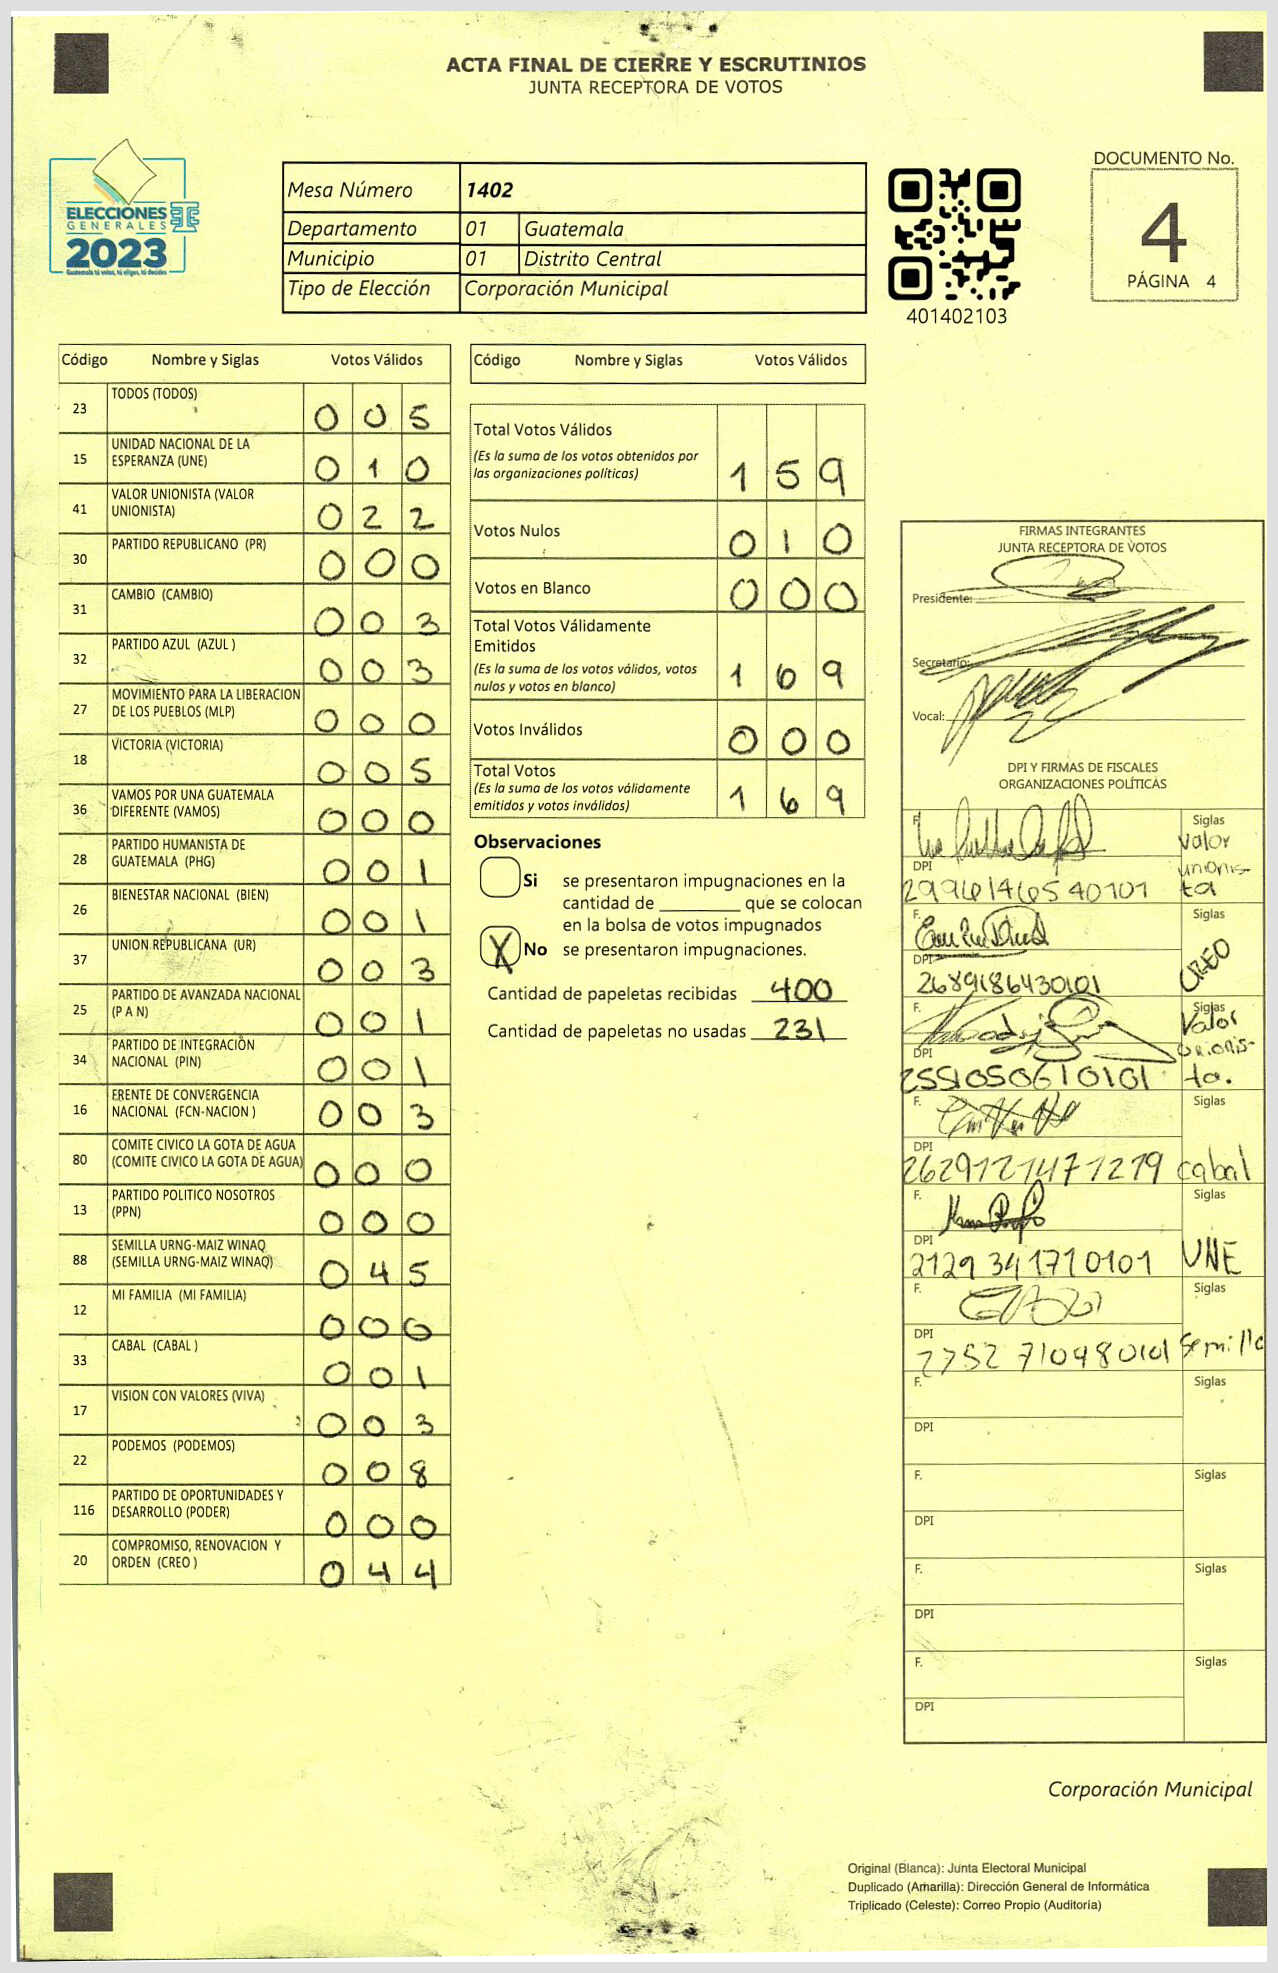 ACTA FINAL DE CIERRE Y ESCRUTINIOS
JUNTA RECEPTORA DE VOTOS
ELECCIONES
GENERALES
2023
Guatemala tú votas, tú eliges, tú decides
Mesa Número 1402
Departamento 01 Guatemala
Municipio 01 Distrito Central
Tipo de Elección Corporación Municipal
401402103
DOCUMENTO No.
4
PÁGINA 4
Código Nombre y Siglas Votos Válidos
23 TODOS (TODOS) 0 0 5
15 UNIDAD NACIONAL DE LA
ESPERANZA (UNE) 0 1 0
41 VALOR UNIONISTA (VALOR
UNIONISTA) 0 2 2
30 PARTIDO REPUBLICANO (PR) 0 0 0
31 CAMBIO (CAMBIO) 0 0 3
32 PARTIDO AZUL (AZUL ) 0 0 3
27 MOVIMIENTO PARA LA LIBERACION
DE LOS PUEBLOS (MLP) 0 0 0
18 VICTORIA (VICTORIA) 0 0 5
36 VAMOS POR UNA GUATEMALA
DIFERENTE (VAMOS) 0 0 0
28 PARTIDO HUMANISTA DE
GUATEMALA (PHG) 0 0 1
26 BIENESTAR NACIONAL (BIEN) 0 0 1
37 UNION REPUBLICANA (UR) 0 0 3
25 PARTIDO DE AVANZADA NACIONAL
(P A N) 0 0 1
34 PARTIDO DE INTEGRACIÓN
NACIONAL (PIN) 0 0 1
16 FRENTE DE CONVERGENCIA
NACIONAL (FCN-NACION ) 0 0 3
80 COMITE CIVICO LA GOTA DE AGUA
(COMITE CIVICO LA GOTA DE AGUA) 0 0 0
13 PARTIDO POLITICO NOSOTROS
(PPN) 0 0 0
88 SEMILLA URNG-MAIZ WINAQ
(SEMILLA URNG-MAIZ WINAQ) 0 4 5
12 MI FAMILIA (MI FAMILIA) 0 0 0
33 CABAL (CABAL ) 0 0 1
17 VISION CON VALORES (VIVA) 0 0 3
22 PODEMOS (PODEMOS) 0 0 8
116 PARTIDO DE OPORTUNIDADES Y
DESARROLLO (PODER) 0 0 0
20 COMPROMISO, RENOVACION Y
ORDEN (CREO ) 0 4 4
Código Nombre y Siglas Votos Válidos
Total Votos Válidos
(Es la suma de los votos obtenidos por
las organizaciones políticas) 1 5 9
Votos Nulos 0 1 0
Votos en Blanco 0 0 0
Total Votos Válidamente
Emitidos
(Es la suma de los votos válidos, votos
nulos y votos en blanco) 1 6 9
Votos Inválidos 0 0 0
Total Votos
(Es la suma de los votos válidamente
emitidos y votos inválidos) 1 6 9
Observaciones
Si se presentaron impugnaciones en la
cantidad de ________ que se colocan
en la bolsa de votos impugnados
X No se presentaron impugnaciones.
Cantidad de papeletas recibidas 400
Cantidad de papeletas no usadas 231
FIRMAS INTEGRANTES
JUNTA RECEPTORA DE VOTOS
Presidente:
Secretario:
Vocal:
DPI Y FIRMAS DE FISCALES
ORGANIZACIONES POLÍTICAS
F. Siglas
Valor
unionis-
ta
DPI
F. Siglas
CREO
DPI
2689186430101
F. Siglas
Valor
unionis-
ta.
DPI
2551050610101
F. Siglas
DPI
2629121471219 cabal
F. Siglas
DPI
2129 341710101 UNE
F. Siglas
DPI
2252 710480101 Semilla
F. Siglas
DPI
F. Siglas
DPI
F. Siglas
DPI
F. Siglas
DPI
Corporación Municipal
Original (Blanca): Junta Electoral Municipal
Duplicado (Amarilla): Dirección General de Informática
Triplicado (Celeste): Correo Propio (Auditoría)